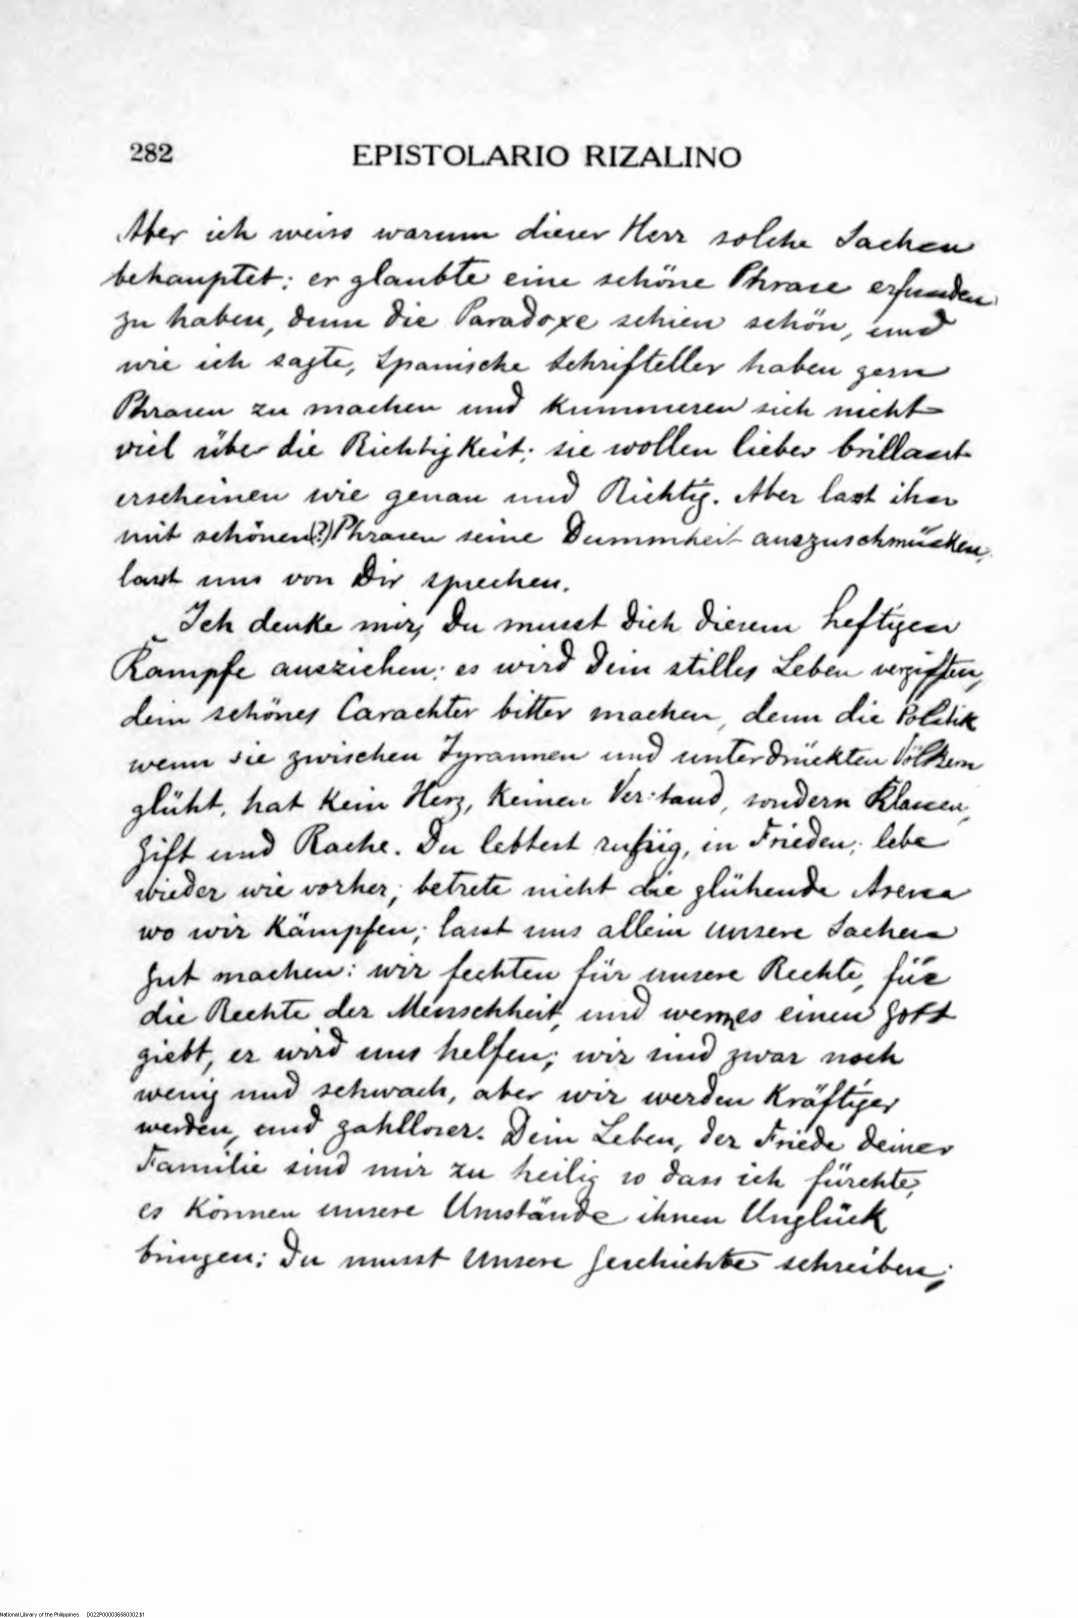 282 EPISTOLARIO RIZALINO
Aber ich weiss warum dieser Herr solche Sachen
behauptet: er glaubte eine schöne Phrase erfunden
zu haben, denn die Paradoxe schien schön, und
wie ich sagte, Spanische Schrifteller haben gern
Phrasen zu machen und kummeren sich nicht
viel über die Richtigkeit; sie wollen lieber brillant
erscheinen wie genau und Richtig. Aber last ihn
mit schönen(?) Phrasen seine Dummheit auszuschmücken,
lasst uns von Dir sprechen.
Ich denke mir, Du musst Dich diesem heftigen
Kampfe ausziehen; es wird Dein stilles Leben vergiften,
dein schönes Carackter bitter machen, denn die Politik
wenn sie zwischen Tyrannen und unterdrückten Völkern
glüht, hat kein Herz, keinen Verstand, sondern
Gift und Rache. Du lebtest in Frieden; lebe
wieder wie vorher; betrete nicht die glühende Arena
wo wir kämpfen; lasst uns allein unsere Sachen
gut machen: wir fechten für unsere Rechte, für
die Rechte der Menschheit, und wenn es einen Gott
giebt, er wird uns helfen; wir sind zwar noch
wenig und schwach, aber wir werden kräftiger
werden, und zahlloser. Dein Leben, der Friede deiner
Familie sind mir zu heilig so dass ich fürchte,
es können unsere Umstände ihnen Unglück
bringen: Du musst unsere Geschichte schreiben;
National Library of the Philippines